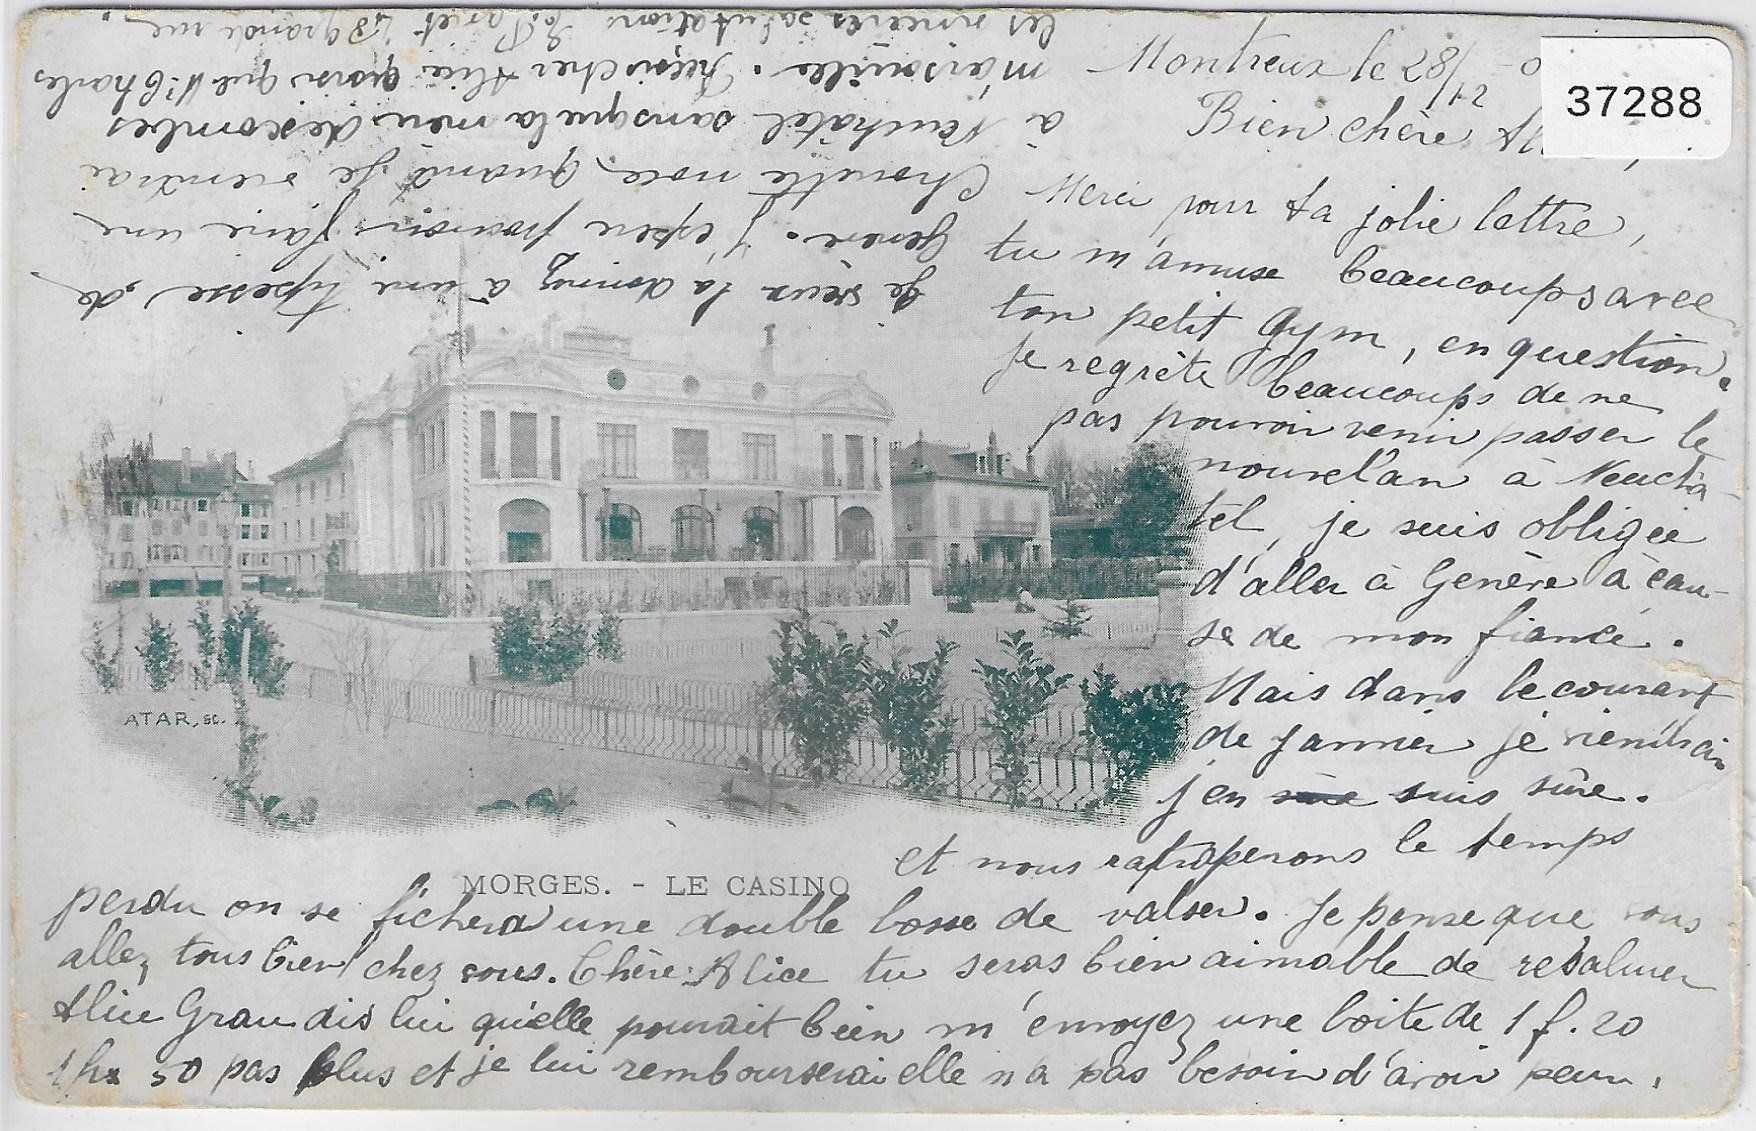 Montreux le 28/12 - 0
37288
Bien chère
Merci pour ta jolie lettre,
tu m'amuse beaucoups avec
ton petit Gym, en question.
Je regrète beaucoups de ne
pas pouvoir venir passer le
nouvel'an à Neuchâ-
tel, je suis obligée
d'aller à Genève à cau-
se de mon fiancé.
Mais dans le courant
de janvier je viendrai
j'en suis sûre.
et nous ratraperons le temps
perdu on se fichera une double bosse de valser. Je pense que vous
allez tous bien chez vous. Chère Alice tu seras bien aimable de resaluer
Alice Grau dis lui qu'elle pourrait bien m'envoyez une boite de 1 f. 20
1 fr 50 pas plus et je lui rembourserai elle n'a pas besoin d'avoir peur.
Je veux la donnez à une typesse de
Genève. J'espère pouvoir faire une
chouette noce quand je viendrai
à Neuchâtel sans que la mère descombes
m'arsouille. Reçois chère Alice ainsi que Mr Charles
les sincères salutations 48 grande rue
ATAR, SC.
MORGES. - LE CASINO